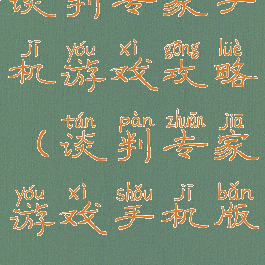 谈判专家手
jī yóu xì gōng lüè
机游戏攻略
tán pàn zhuān jiā
(谈判专家
yóu xì shǒu jī bǎn
游戏手机版